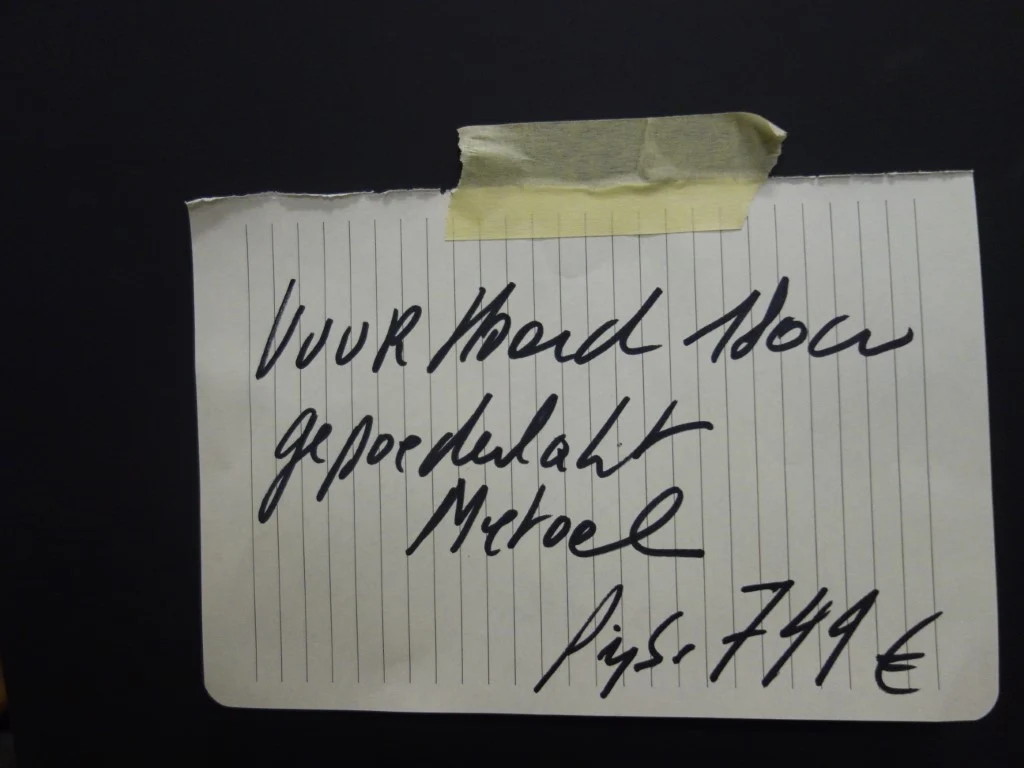 VUUR Haard
gepoederlakt
Metael
Prijs. 749 €